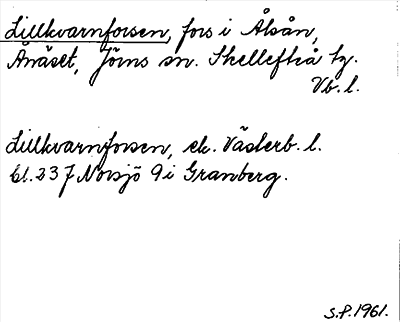 Lillkvarnforsen, fors i Ålsån,
Ånäset, Jörns sn. Skellefteå tg.
Vb. l.
Lillkvarnforsen, ek. Västerb. l.
bl. 23 J Norsjö 9 i Granberg.
S.P. 1961.